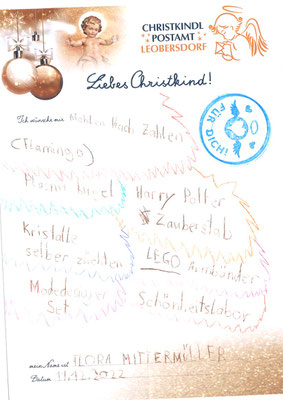 CHRISTKINDL
POSTAMT
LEOBERSDORF
Liebes Christkind!
FÜR DICH!
Ich wünsche mir Mahlen Nach Zahlen
(Flamingo)
Harry Potter
Zauberstab
Kristalle
selber züchten
LEGO Armbänder
Modedesigner
Set
Schönheitslabor
mein Name ist FLORA MITTERMÜLLER
Datum 11.12.2022